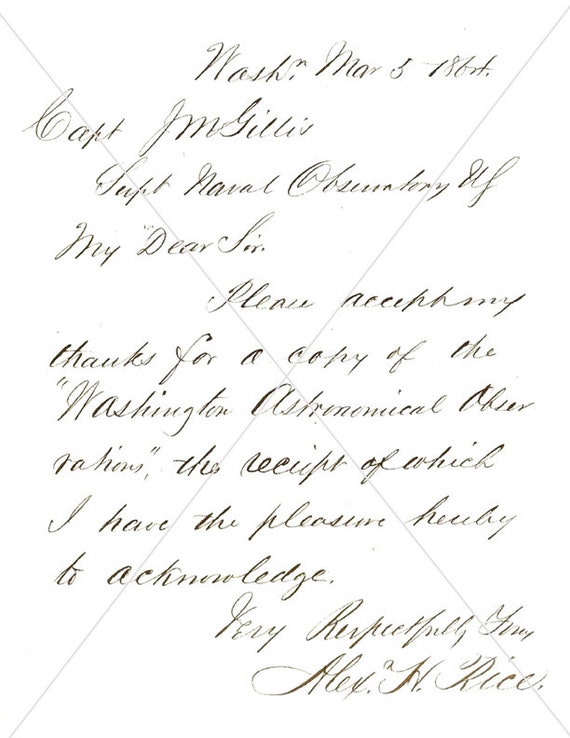 Washn. Mar 5 1864.
Capt J M Gillis
Supt Naval Observatory US
My Dear Sir.
Please accept my
thanks for a copy of the
"Washington Astronomical Obser
vations", the receipt of which
I have the pleasure hereby
to acknowledge.
Very Respectfully Yours
Alexr. H. Rice.